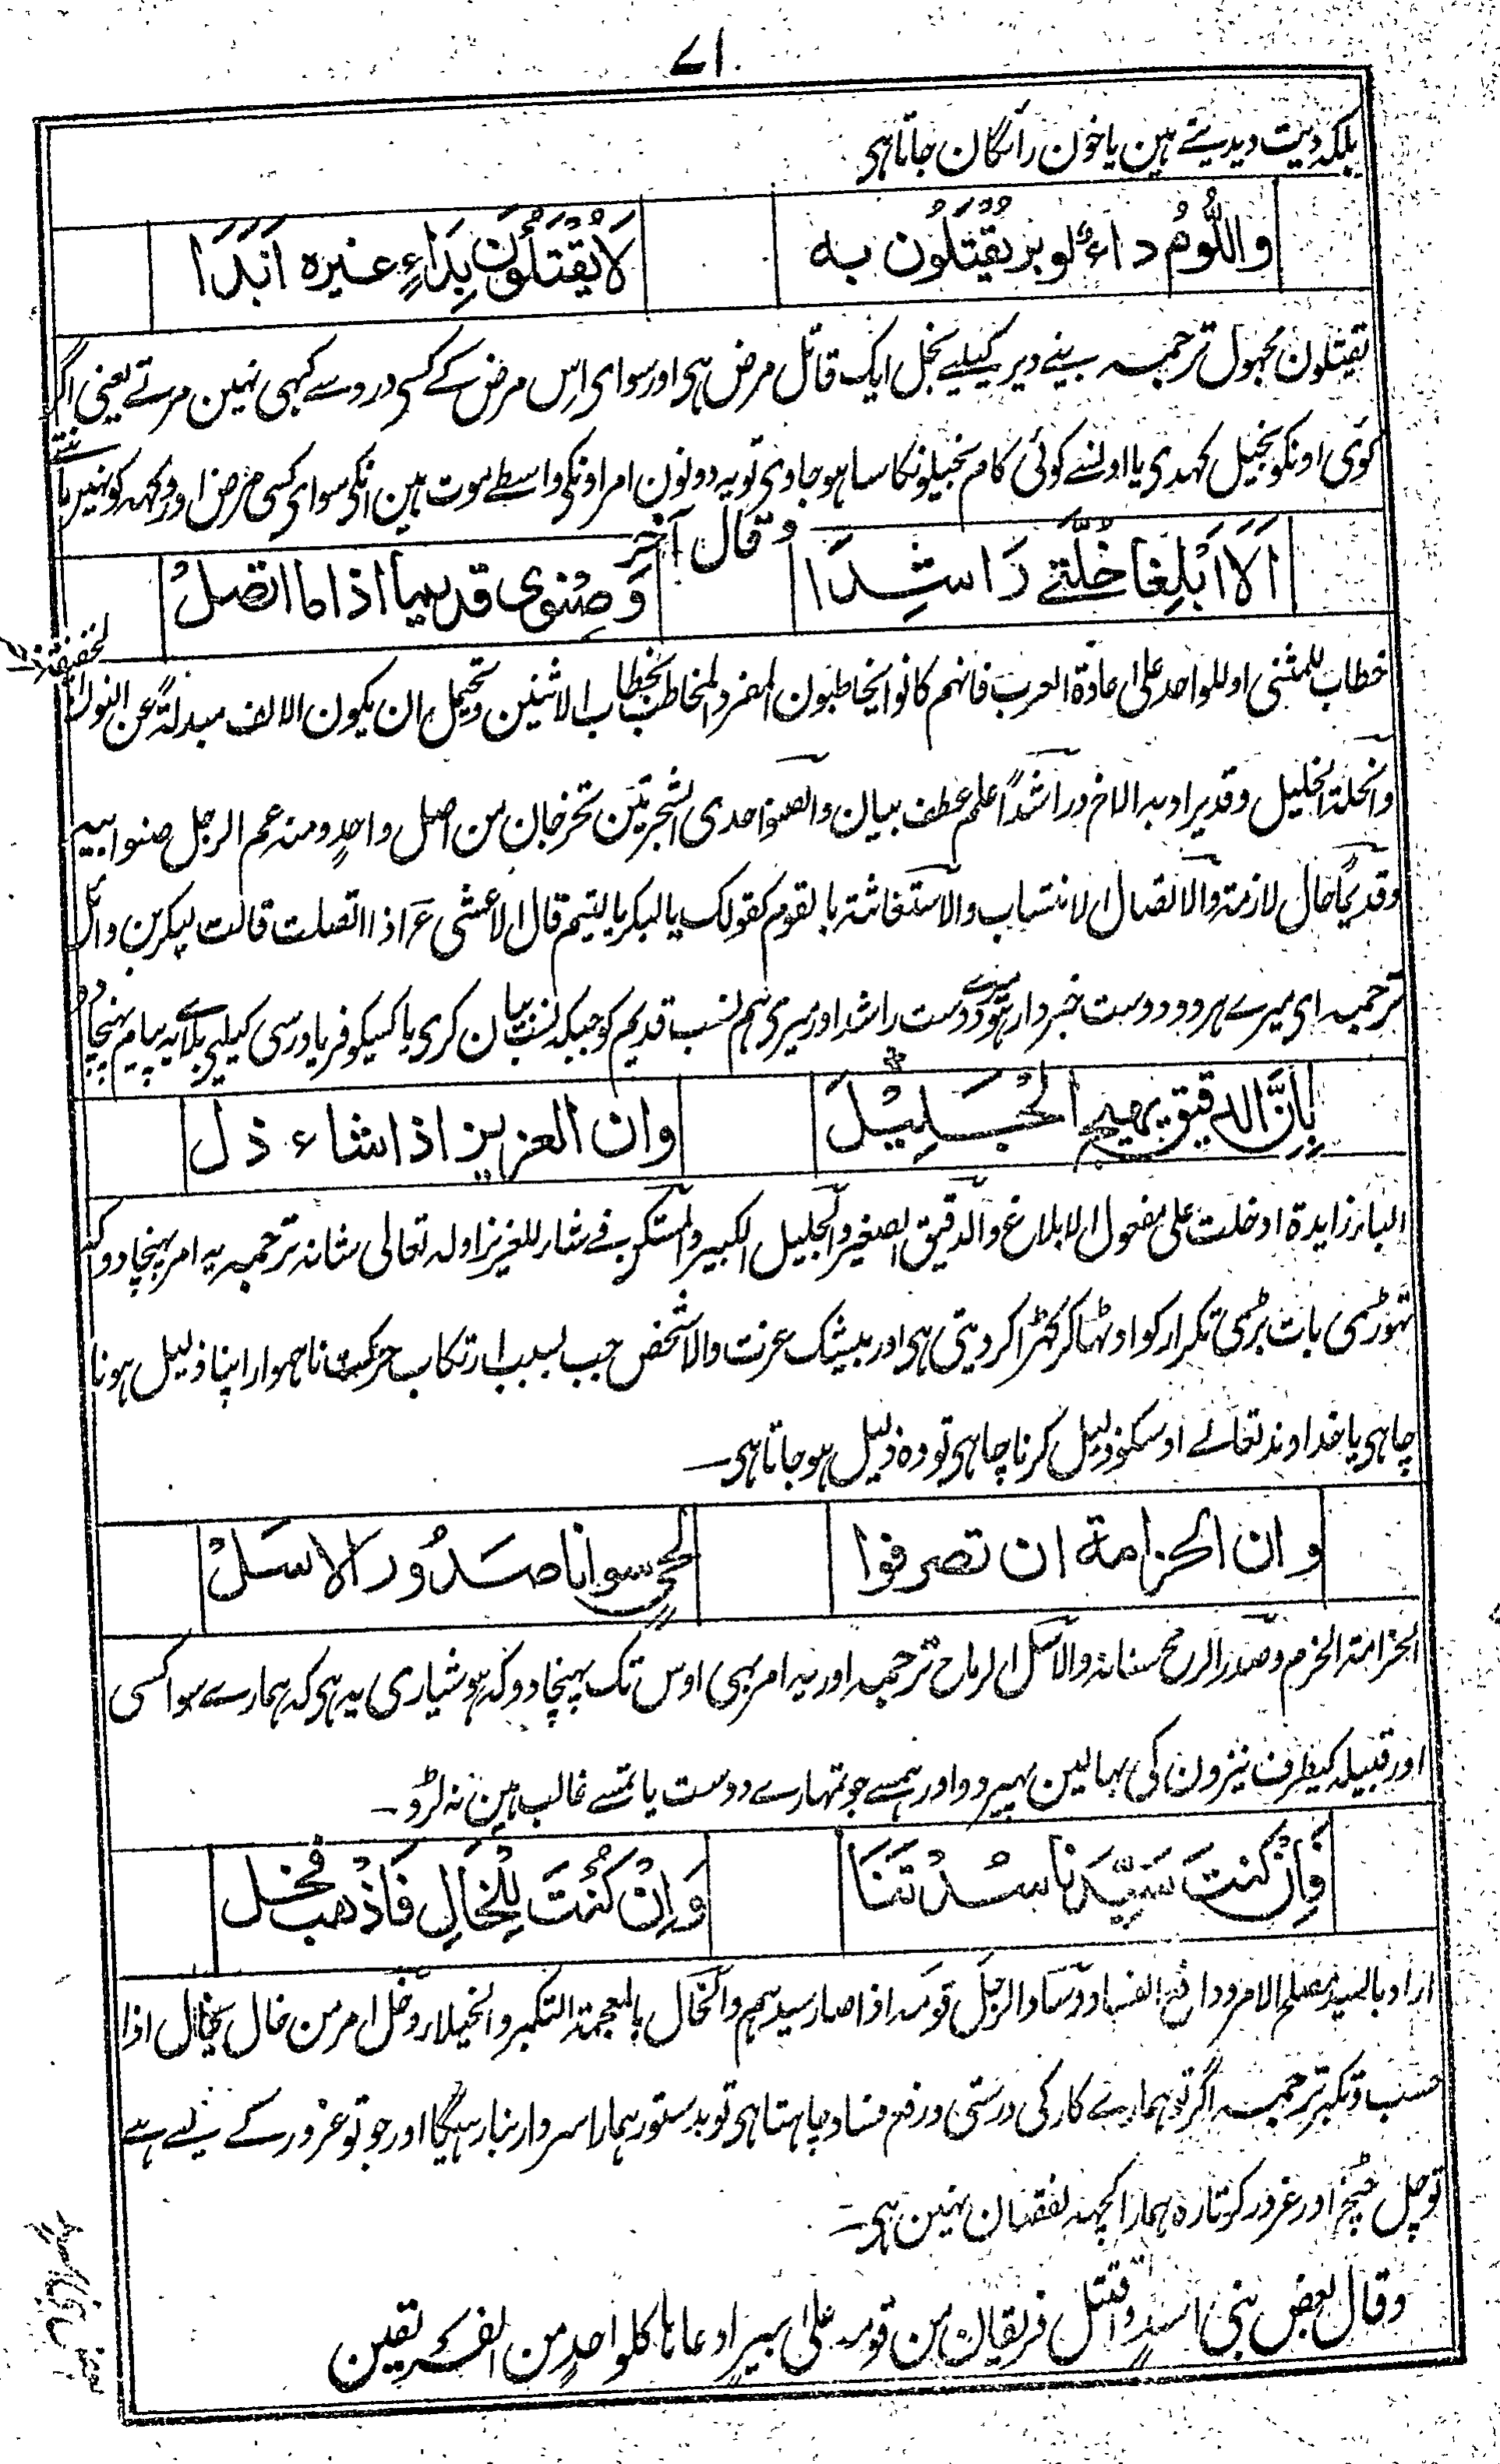 ۷۱
بلکہ دیت دیدیتے ہین یا خون رائگان جاتا ہی
واللُّومُ داءٌ لوبرٍ يُقْتَلُون به لَا يُقْتَلُوْنَ بِدَاءٍ غيره اَبَدَا
یقتلون مجہول ترجمہ بنے دبر کیلیے بخل ایک قاتل مرض ہی اور سوای اِس مرض کے کسی درد سے کبھی نہین مرتے یعنی اگر
کوی اونکو بخیل کہدی یا اونسے کوئی کام بخیلونکا سا ہو جاوی تو یہ دونون امر اونکی واسطے موت ہین انکی سوای کسی مرض اور دکہہ کو نہین مانتے
وقال آخر
اَلَا اَبْلِغَا خُلَّتِيْ رَاشِدًا وَصِنْوِى قديما اذا ما اتصلْ
خطاب للمثنی او للواحد علی عادة العرب فانہم کانوا یخاطبون المفرد المخاطب بخطاب الاثنین ویحتمل ان یکون الالف مبدلة عن النون الخفیفة
والخلة الخلیل وقد یراد بہ الاخ وراشداً علم عطف بیان والصنو احدی الشجرتین تخرجان من اصل واحد ومنہ عم الرجل صنو ابیہ
وقدیماً حال لازمة والاتصال الانتساب والاستغاثة بالقوم کقولک یا لبکر یا لتیم قال الاعشی ع اذا اتصلت قالت لبکر بن وائل
ترجمہ ای میرے ہر دو دوست خبردار ہو میرے دوست راشد اور میری ہم نسب قدیم کو جبکہ نسب بیان کری یا کسیکو فریاد رسی کیلیے بلائے یہ پیام پہنچا دو
بِاَنَّ الدقيق يهيج الجَلِيْلَ وان العزيز اذا شاء ذل
الباء زایدة ادخلت علی مفعول الابلاغ والدقیق الصغیر والجلیل الکبیر والمستکن فی شاء للعزیز اولہ تعالی شانہ ترجمہ یہ امر پہنچا دو کہ
تہوڑی بات بڑی تکرار کو اوٹھا کر کھڑا کر دیتی ہی اور بیشک عزت والا شخص جب بسبب ارتکاب حرکت ناہموار اپنا ذلیل ہونا
چاہی یا خداوند تعالے اوسکو ذلیل کرنا چاہی تو وہ ذلیل ہو جاتا ہی۔
وان الحزامة ان تصرفوا لحيٍ سوانا صدُور الاسَلْ
الحزامة الحزم وصدر الرمح سنانہ والاسل الرماح ترجمہ اور یہ امر بہی اوس تک پہنچا دو کہ ہوشیاری یہ ہی کہ ہمارے سوا کسی
اور قبیلہ کیطرف نیزون کی بہالین پہیر دو اور ہمسے جو تمہارے دوست یا تمسے غالب ہین نہ لڑو۔
فَاِنْ كنتَ سَيِّدَنا سُدْتَنَا وَاِنْ كُنْتَ لِلْخَالِ فَاذْهب فخل
اراد بالسید مصلح الامر ودافع الفساد وساد الرجل قومہ اذا صار سیدہم والخال بالمعجمة التکبر والخیلاء وخل امر من خال یخال اذا
حسب وتکبر ترجمہ اگر تو ہمارے کار کی درستی و رفع فساد چاہتا ہی تو بدستور ہمارا سردار بنا رہیگا اور جو تو غرور کے لیے ہے
تو چل چخ اور غرور کرتا رہ ہمارا کچہہ نقصان نہین ہی۔
وقال بعض بنی اسد واقتتل فریقان من قومہ علی بیر ادعاہا کل واحد من الفریقین